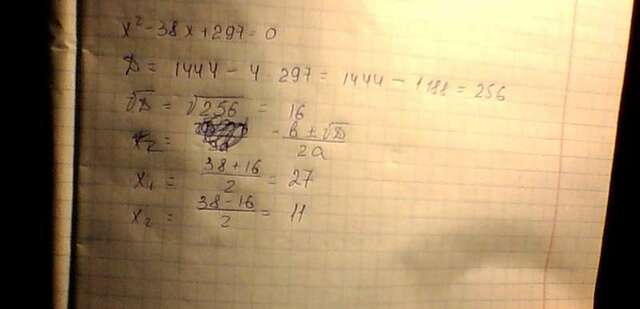 x² - 38x + 297 = 0
D = 1444 - 4 · 297 = 1444 - 1188 = 256
√D = √256 = 16
x₂ = -b ± √D / 2a
x₁ = 38 + 16 / 2 = 27
x₂ = 38 - 16 / 2 = 11